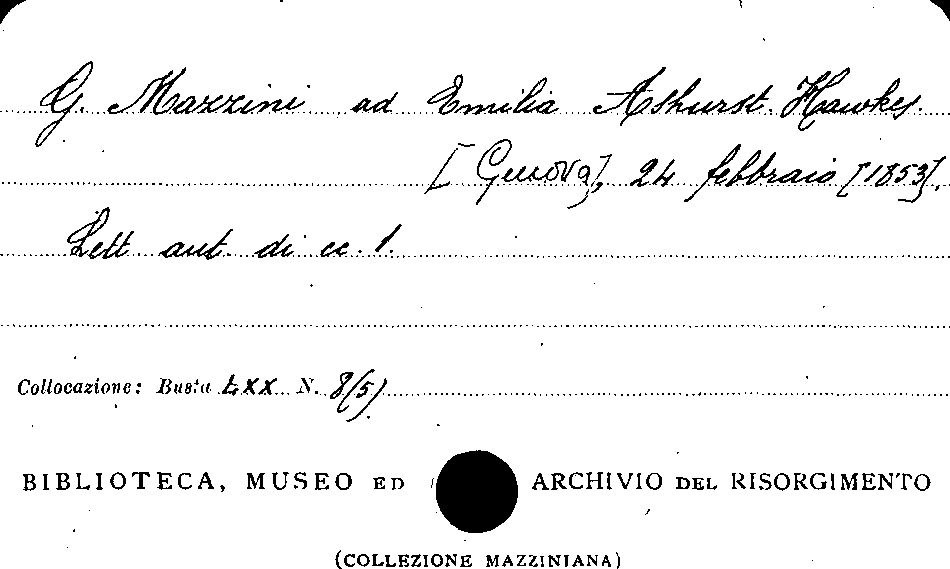 G. Mazzini ad Emilia Ashurst Hawkes.
[Genova], 24 febbraio [1853].
Lett aut. di cc. 1.
Collocazione: Busta LXX N. 8(5)
BIBLIOTECA, MUSEO ED ARCHIVIO DEL RISORGIMENTO
(COLLEZIONE MAZZINIANA)